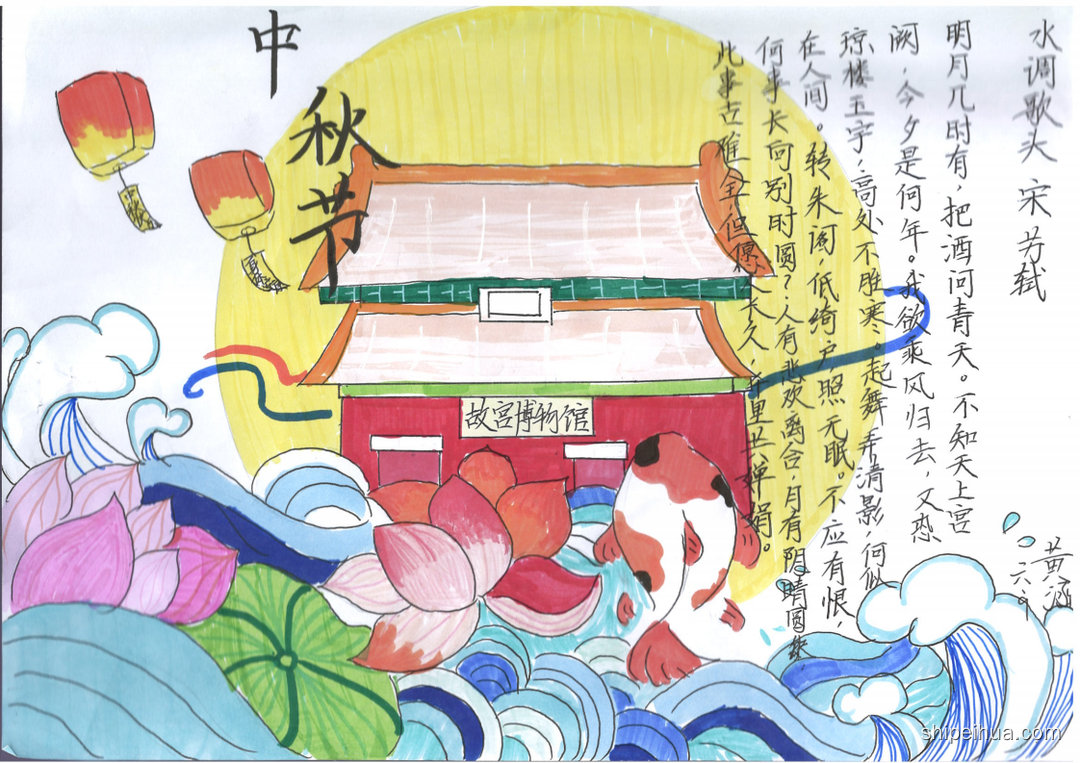 中秋节
水调歌头 宋 苏轼
明月几时有，把酒问青天。不知天上宫
阙，今夕是何年。我欲乘风归去，又恐
琼楼玉宇，高处不胜寒。起舞弄清影，何似
在人间。转朱阁，低绮户，照无眠。不应有恨，
何事长向别时圆？人有悲欢离合，月有阴晴圆缺
此事古难全，但愿人长久，千里共婵娟。
故宫博物馆
黄涵
shipeihua.com